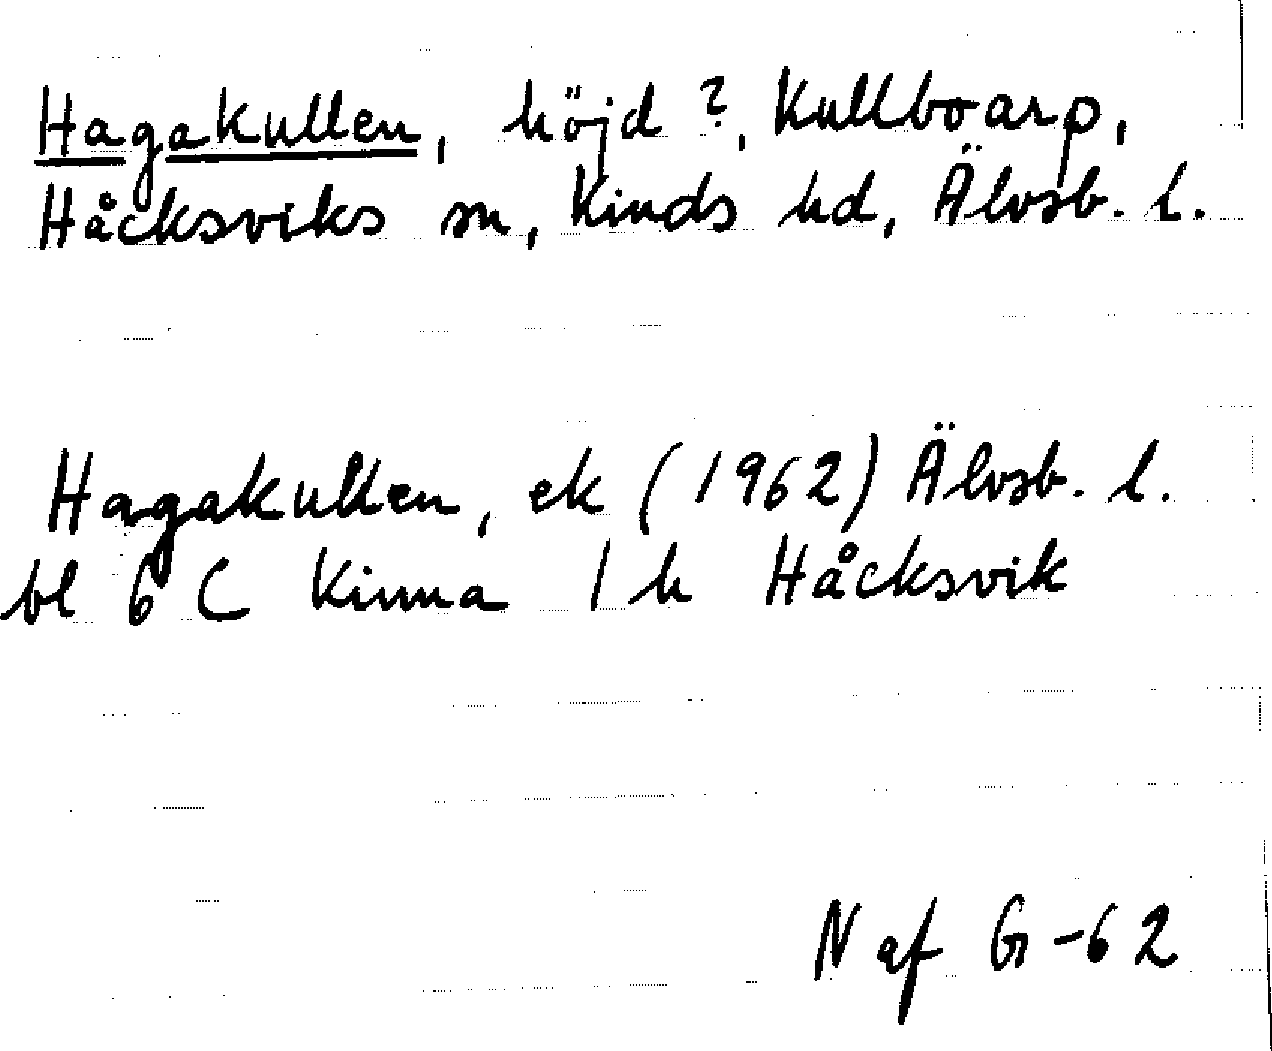 Hagakullen, höjd?, Kullboarp,
Håcksviks sn, Kinds hd, Älvsb. l.
Hagakullen, ek (1962) Älvsb. l.
bl 6 C Kinna 1 h Håcksvik
N af G-62